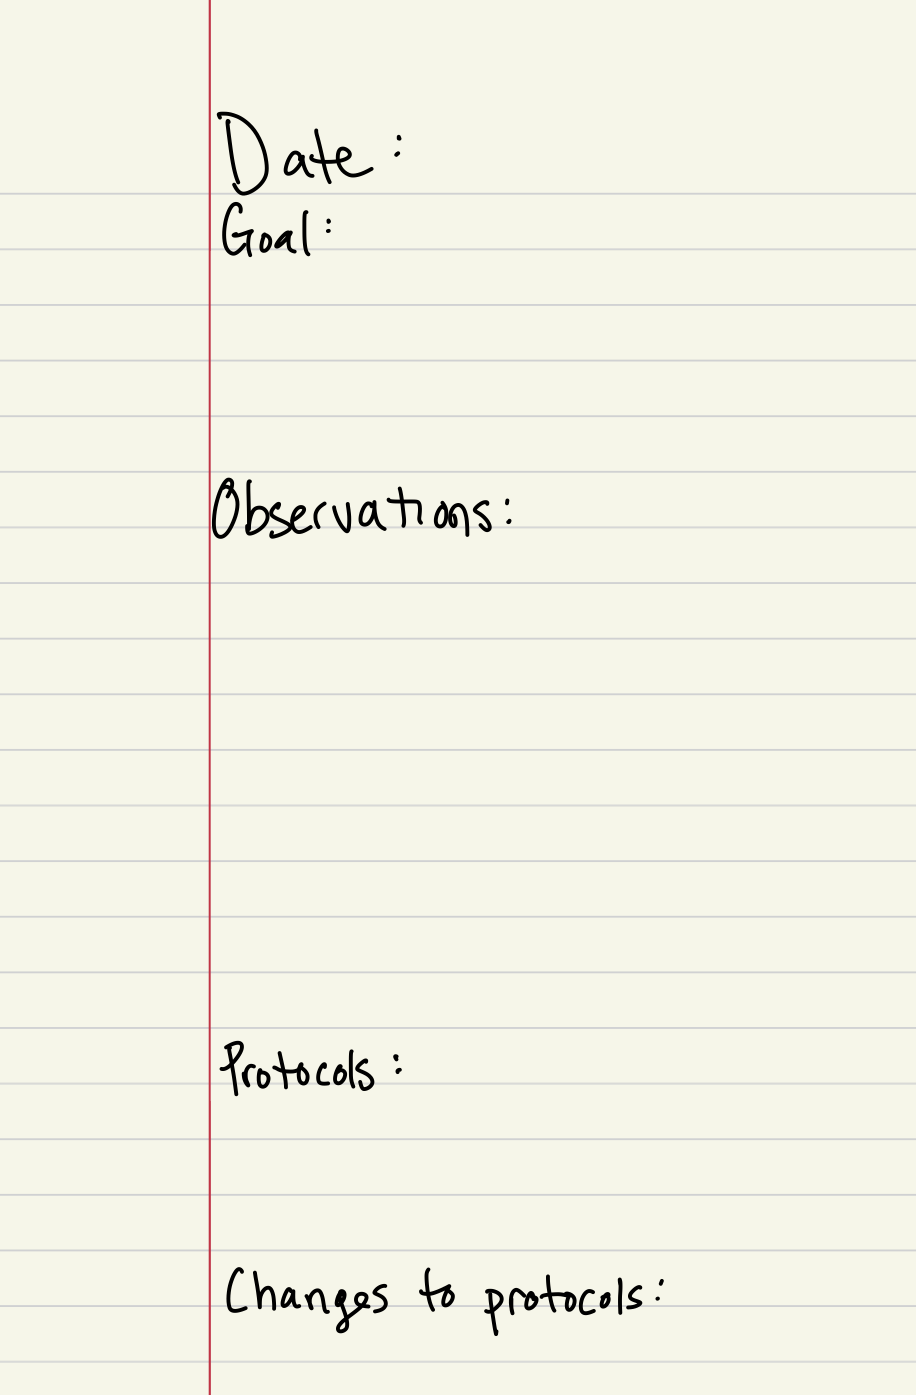 Date:
Goal:
Observations:
Protocols:
Changes to protocols: